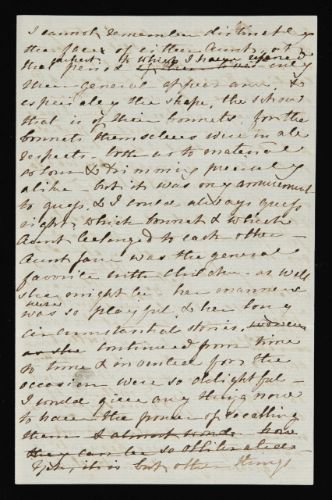 I cannot remember distinctly
the face of either Aunts, at
the earliest period to which I have referred
their general appearance, &
especially the shape, the
that is of their bonnets for the
bonnets themselves were in all
respects - both as to material
colour & trimming precisely
alike but it was my amusement
to guess, & I could always guess
right, which bonnet & which
Aunt belonged to each other -
Aunt Jane was the general
favorite with children - as well
she might be her manners
were so playful, & her long
circumstantial stories,
continued from time
to time & invented for the
occasion were so delightful -
I would give any thing now
to have the power of recalling
them I almost wonder how
they can be so obliterated -
Yes, it is but other things